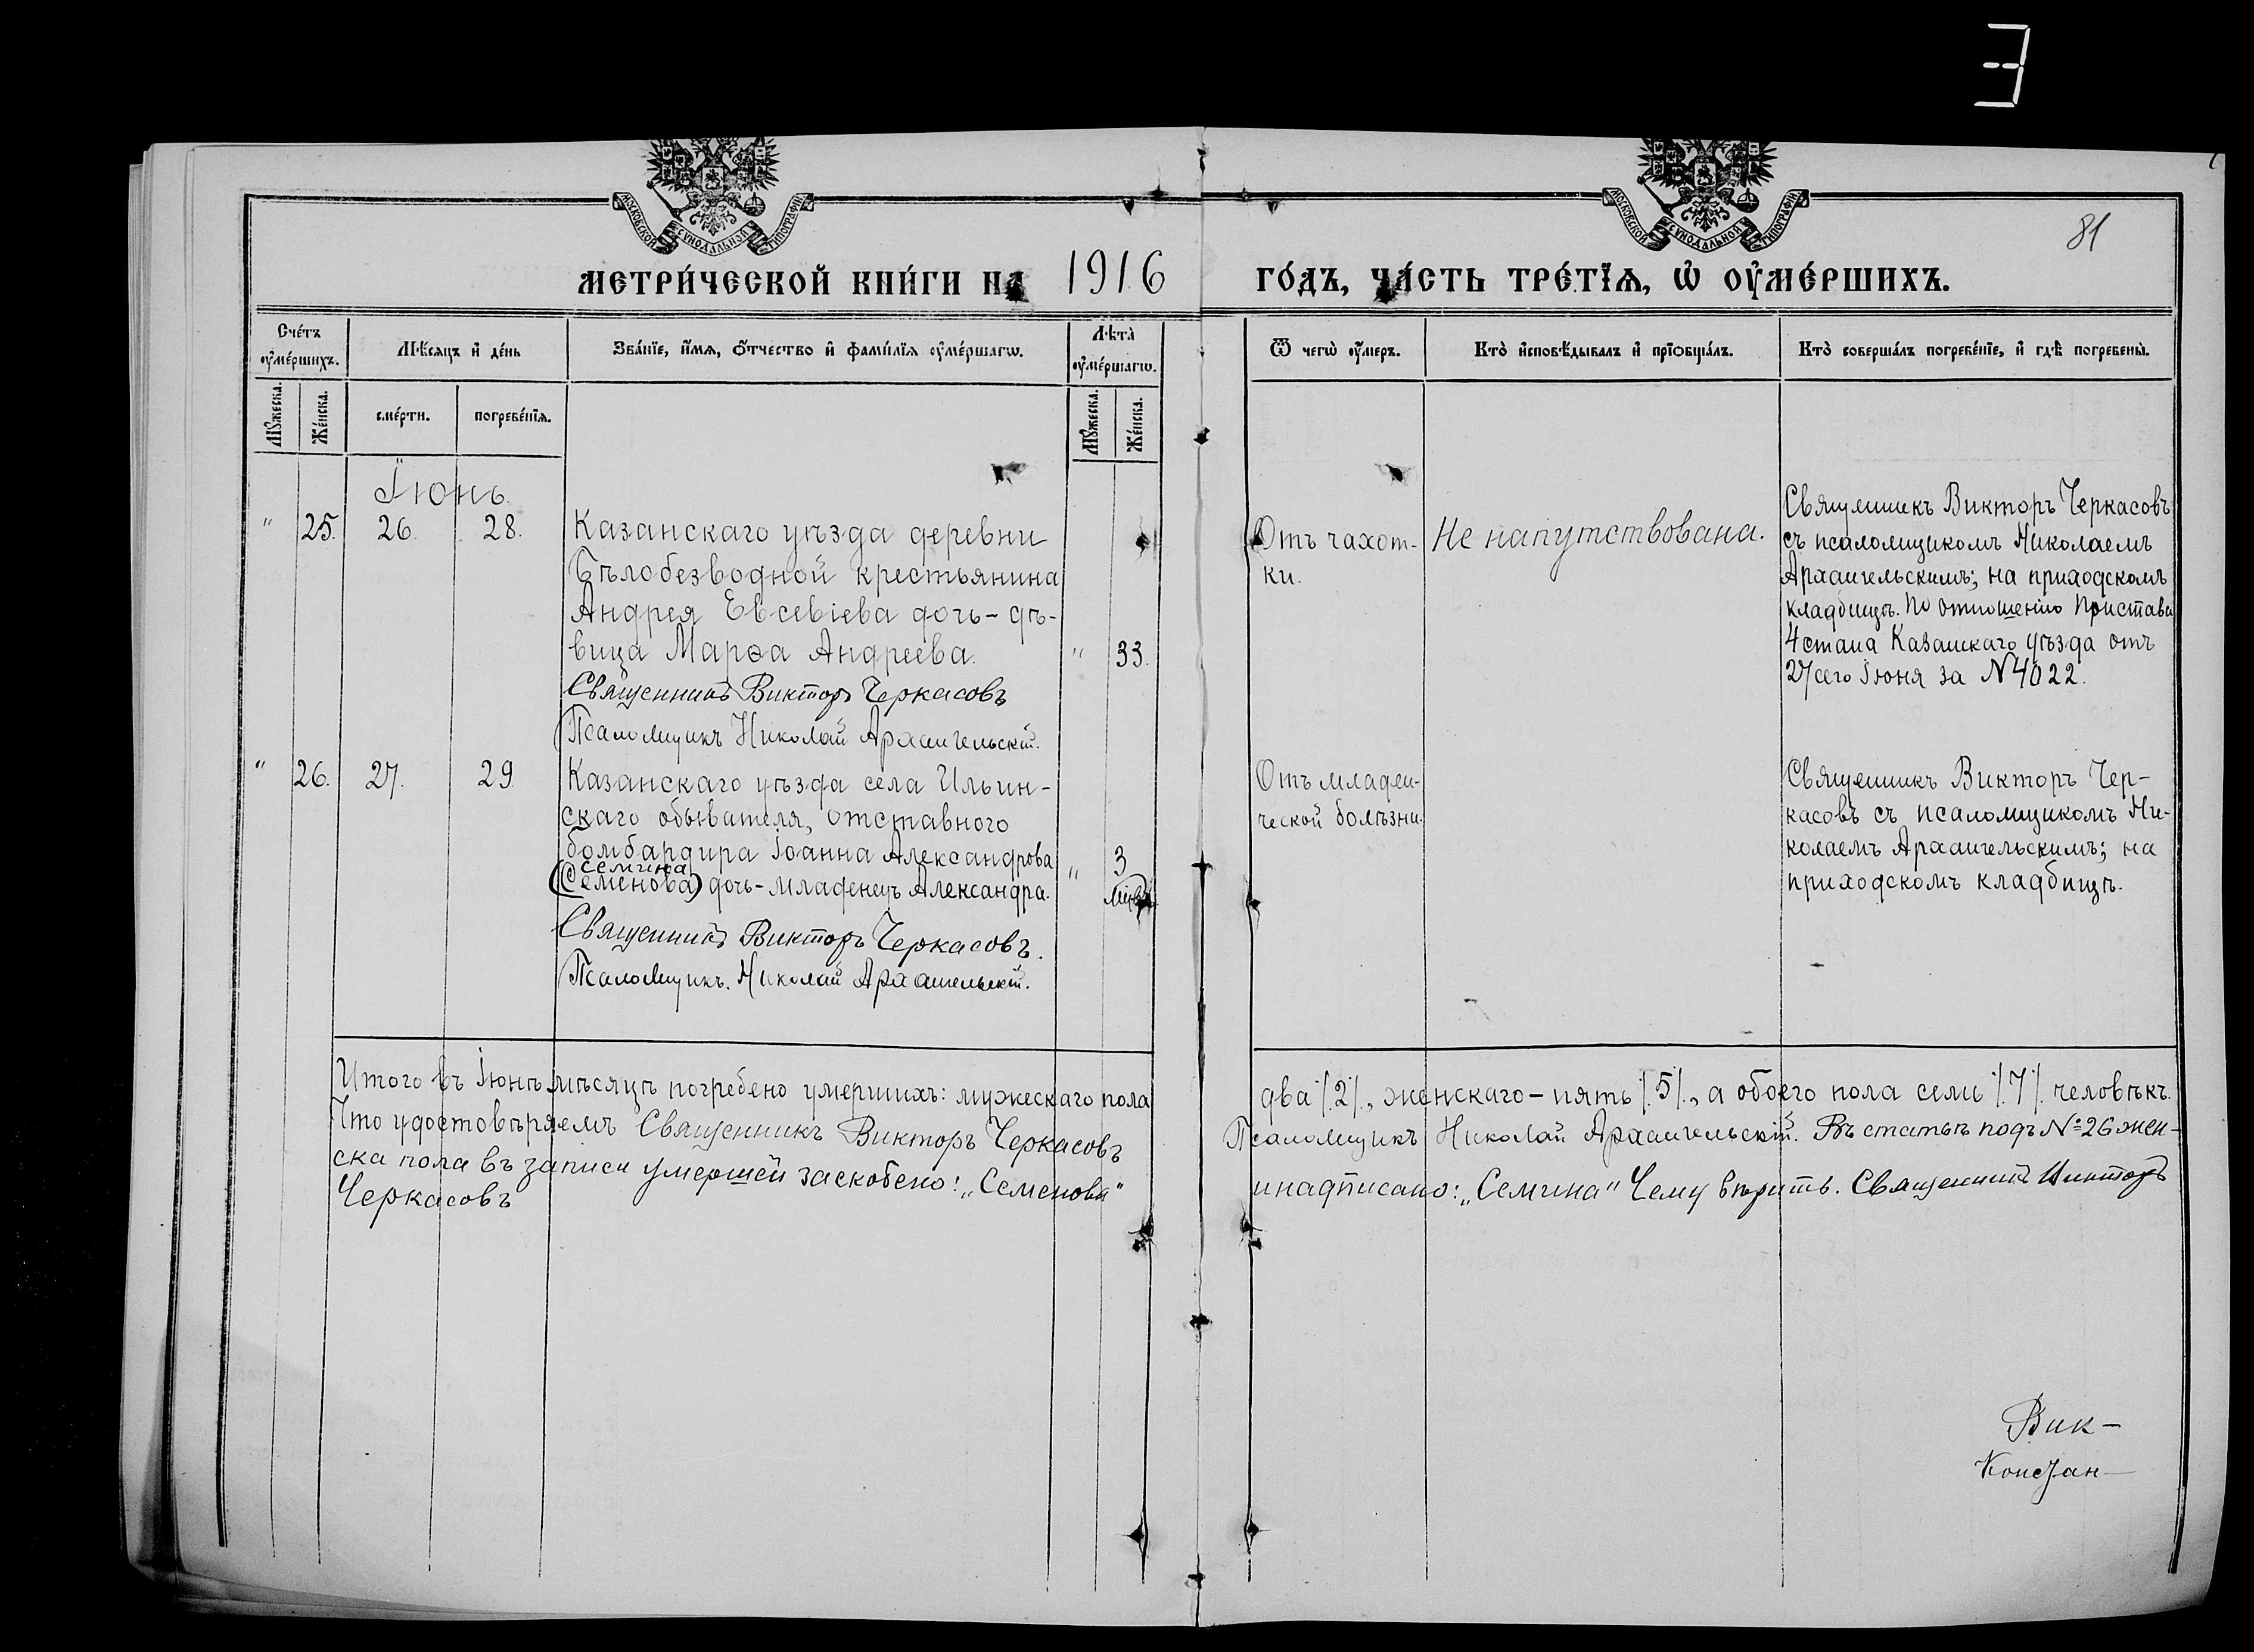 Э
МОСКОВСКОЙ СѴНОДАЛЬНОЙ ТИПОГРАФІИ.
МОСКОВСКОЙ СѴНОДАЛЬНОЙ ТИПОГРАФІИ.
81
МЕТРИ́ЧЕСКОЙ КНИ́ГИ НА 1916 ГО́ДЪ, ЧА́СТЬ ТРЕ́ТЇѦ, Ѡ҆ ОУ҆МЕ́РШИХЪ.
Сче́тъ оу҆ме́ршихъ.
Мѣ́сяцъ и҆ де́нь
Зва́нїе, и҆́мѧ, ѻ҆́тчество и҆ фами́лїѧ оу҆ме́ршагѡ.
Лѣ̀та оу҆ме́ршагѡ.
Ѿ чегѡ̀ оу҆́меръ.
Кто̀ и҆сповѣ́дывалъ и҆ прїѡбща́лъ.
Кто̀ соверша́лъ погребе́нїе, и҆ гдѣ̀ погребены̀.
Мꙋ́жеска.
Же́нска.
сме́рти.
погребе́нїѧ.
Мꙋ́жеска.
Же́нска.
Іюнь
" 25. 26. 28.
Казанскаго уѣзда деревни
Бѣлобезводной крестьянина
Андрея Евсевіева дочь-дѣ-
вица Марѳа Андреева. " 33.
Священникъ Викторъ Черкасовъ
Псаломщикъ Николай Архангельскій.
Отъ чахот-
ки.
Не напутствована.
Священникъ Викторъ Черкасовъ
съ псаломщикомъ Николаемъ
Архангельскимъ; на приходскомъ
кладбищѣ. По отношенію Пристава
4 стана Казанскаго уѣзда отъ
27 сего Іюня за N 4022.
" 26. 27. 29
Казанскаго уѣзда села Ильин-
скаго обывателя, отставного
бомбардира Іоанна Александрова
Семина
(Семенова) дочь-младенецъ Александра. " 3
Священникъ Викторъ Черкасовъ.
Псаломщикъ. Николай Архангельскій.
Отъ младен-
ческой болѣзни.
Священникъ Викторъ Чер-
касовъ съ псаломщикомъ Ни-
колаемъ Архангельскимъ; на
приходскомъ кладбищѣ.
Итого въ Іюнѣ мѣсяцѣ погребено умершихъ: мужескаго пола два /.2/., женскаго-пять /.5/., а обоего пола семь /.7/. человѣкъ.
Что удостовѣряемъ Священникъ Викторъ Черкасовъ Псаломщикъ Николай Архангельскій. Въ статьѣ подъ №=26 жен-
ска пола въ записи умершей заскоблено: „Семенова" и надписано: „Семина" Чему вѣрить. Священникъ Викторъ
Черкасовъ
Вик-
Констан-